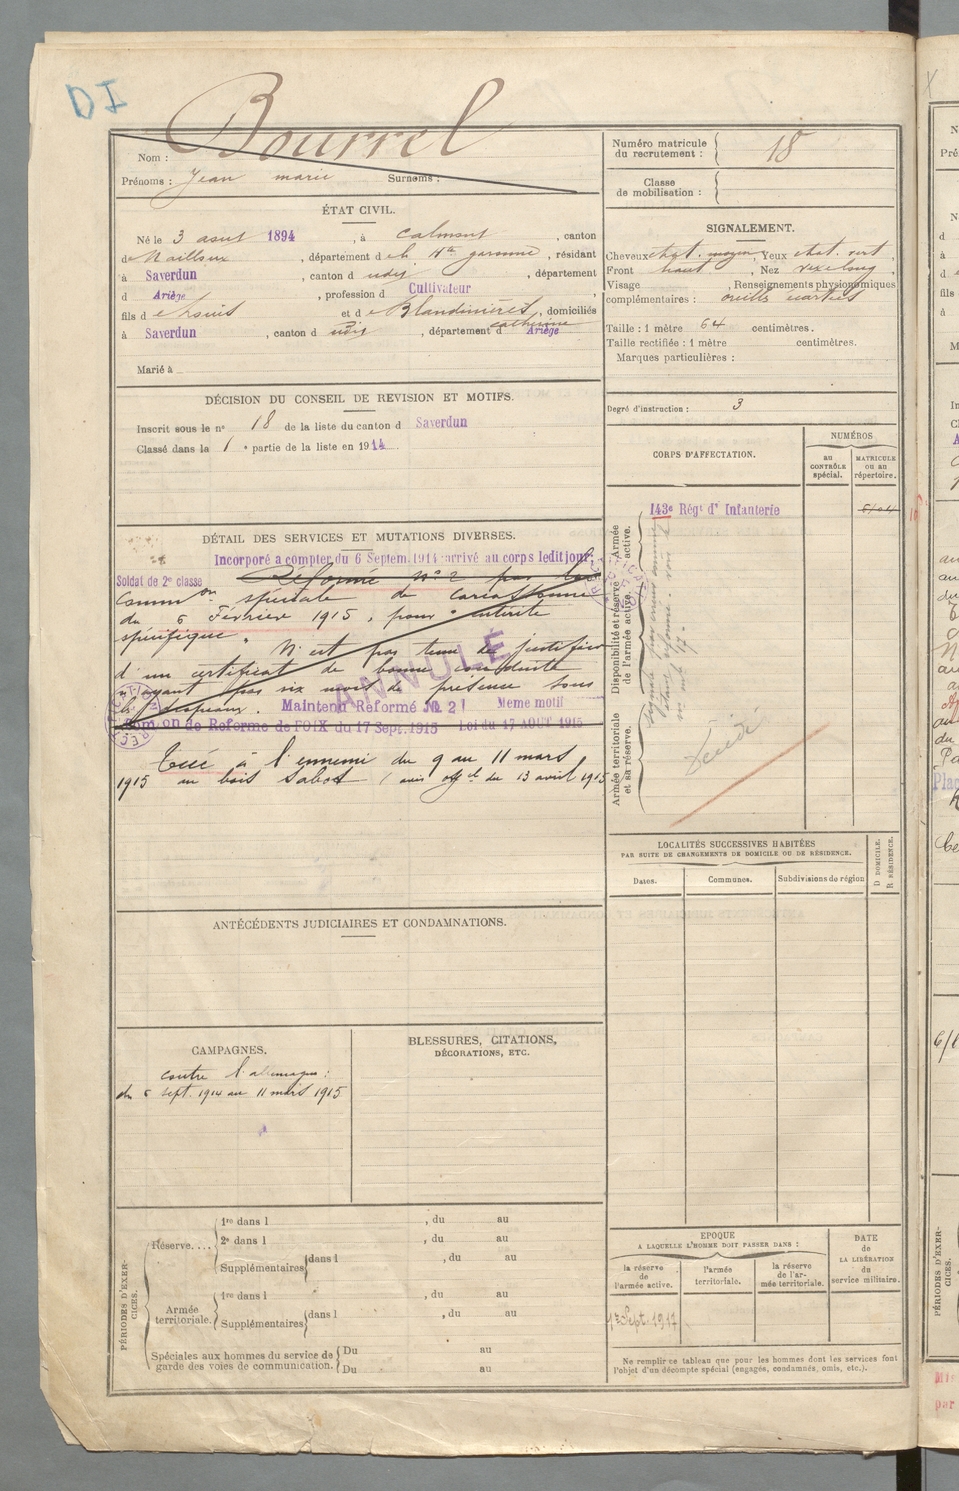 DI
Bourrel
Nom :
Prénoms : Jean marie Surnoms :
Numéro matricule du recrutement : 18
Classe de mobilisation :
ÉTAT CIVIL.
Né le 3 aout 1894, à Calmont, canton
de Nailloux, département de la Hte garonne, résidant
à Saverdun, canton d udit, département
d Ariège, profession d Cultivateur
fils d e Louis et d e Blandinières, domiciliés
catherine
à Saverdun, canton d udit, département d Ariège
Marié à
SIGNALEMENT.
Cheveux chat. moyen, Yeux chat. vert,
Front haut, Nez long,
Visage , Renseignements physionomiques
complémentaires : oreilles écartées
Taille : 1 mètre 64 centimètres.
Taille rectifiée : 1 mètre centimètres.
Marques particulières :
DÉCISION DU CONSEIL DE REVISION ET MOTIFS.
Inscrit sous le n° 18 de la liste du canton d Saverdun
Classé dans la 1e partie de la liste en 1914
Degré d'instruction : 3
CORPS D'AFFECTATION.
NUMÉROS
au CONTRÔLE spécial.
MATRICULE ou au répertoire.
Armée active.
Disponibilité et réserve de l'armée active.
Armée territoriale et sa réserve.
143e Régt d' Infanterie
Décédé
DÉTAIL DES SERVICES ET MUTATIONS DIVERSES.
Incorporé a compter du 6 Septem. 1914 arrivé au corps ledit jour
Soldat de 2e classe Réformé N° 2 par la
Common spéciale de Carcassonne
du 6 Février 1915, pour "entérite
spécifique". N'est pas tenu de justifier
d'un certificat de bonne conduite
n'ayant pas six mois de présence sous
les drapeaux. Maintenu Réformé No. 2 Meme motif
Common de Reforme de FOIX du 17 Sept. 1915 Loi du 17 AOUT 1915
ANNULÉ
Tué à l'ennemi du 9 au 11 mars
1915 au bois Sabot (avis offel du 13 avril 1915
LOCALITÉS SUCCESSIVES HABITÉES
PAR SUITE DE CHANGEMENTS DE DOMICILE OU DE RÉSIDENCE.
Dates.
Communes.
Subdivisions de région
D DOMICILE.
R RÉSIDENCE.
ANTÉCÉDENTS JUDICIAIRES ET CONDAMNATIONS.
CAMPAGNES.
contre l'allemagne :
du 6 sept. 1914 au 11 mars 1915
BLESSURES, CITATIONS,
DÉCORATIONS, ETC.
PÉRIODES D'EXERCICES.
Réserve....
1re dans l , du au
2e dans l , du au
Supplémentaires dans l , du au
Armée territoriale.
1re dans l , du au
Supplémentaires dans l , du au
Spéciales aux hommes du service de
garde des voies de communication.
Du au
Du au
EPOQUE
A LAQUELLE L'HOMME DOIT PASSER DANS :
la réserve de l'armée active.
l'armée territoriale.
la réserve de l'armée territoriale.
DATE de LA LIBÉRATION du service militaire.
1er Sept. 1917
Ne remplir ce tableau que pour les hommes dont les services font
l'objet d'un décompte spécial (engagés, condamnés, omis, etc.).